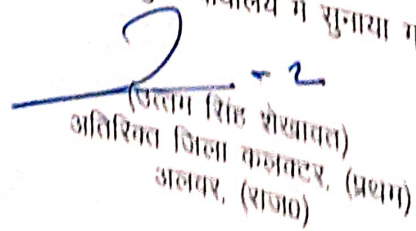 में सुनाया
- 2
(उत्तम सिंह शेखावत)
अतिरिक्त जिला कलक्टर, (प्रथम)
अलवर, (राज0)